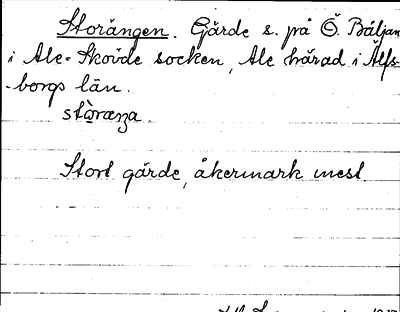 Storängen. Gärde s. på Ö. Båljan
i Ale-Skövde socken, Ale härad i Älfs-
-borgs län.
stòræŋa
Stort gärde, åkermark mest.